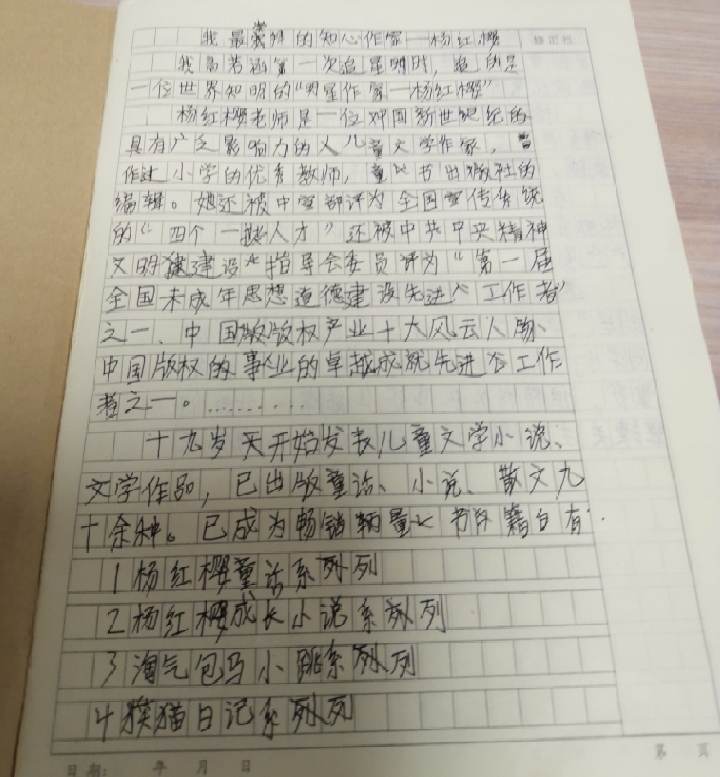 我最崇拜的知心作家—杨红樱
我易若涵第一次追星明时，追的是
一位世界知明的“明星作家—杨红樱”
杨红樱老师是一位对中国新世纪的
具有广泛影响力的人儿童文学作家，曾
作过小学的优秀教师，童书时报社的
编辑。她还被中宣部评为全国宣传系统
的“四个一批人才”还被中共中央精神
文明建设指导会委员评为“第一届
全国未成年思想道德建设先进工作者”
之一、中国版权产业十大风云人物、
中国版权的事业的卓越成就先进工作
者之一。………
十九岁天开始发表儿童文学小说、
文学作品，已出版童话、小说、散文九
十余种。已成为畅销量 书籍白有
1杨红樱童话系列
2杨红樱成长小说系列
3淘气包马小跳系列
4猫日记系列
日期： 年 月 日
第 页